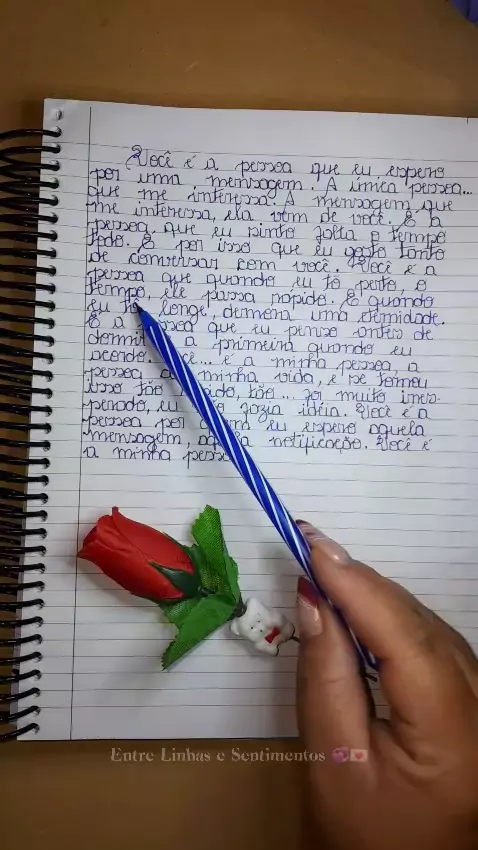 Você é a pessoa que eu espero
por uma mensagem. A única pessoa...
que me interessa. A mensagem que
me interessa, ela vem de você. É a
pessoa que eu sinto falta o tempo
todo. É por isso que eu gosto tanto
de conversar com você. Você é a
pessoa que quando eu tô perto, o
tempo, ele passa rápido. E quando
eu tô longe, demora uma eternidade.
É a que eu penso antes de
a primeira quando eu
acordo. ... é a minha pessoa, a
pessoa minha vida, e se tornou
isso tão tão... foi muito ines-
perado, eu fazia ideia. Você é a
pessoa por eu espero aquela
mensagem, notificação. Você é
a minha
Entre Linhas e Sentimentos 💞💌